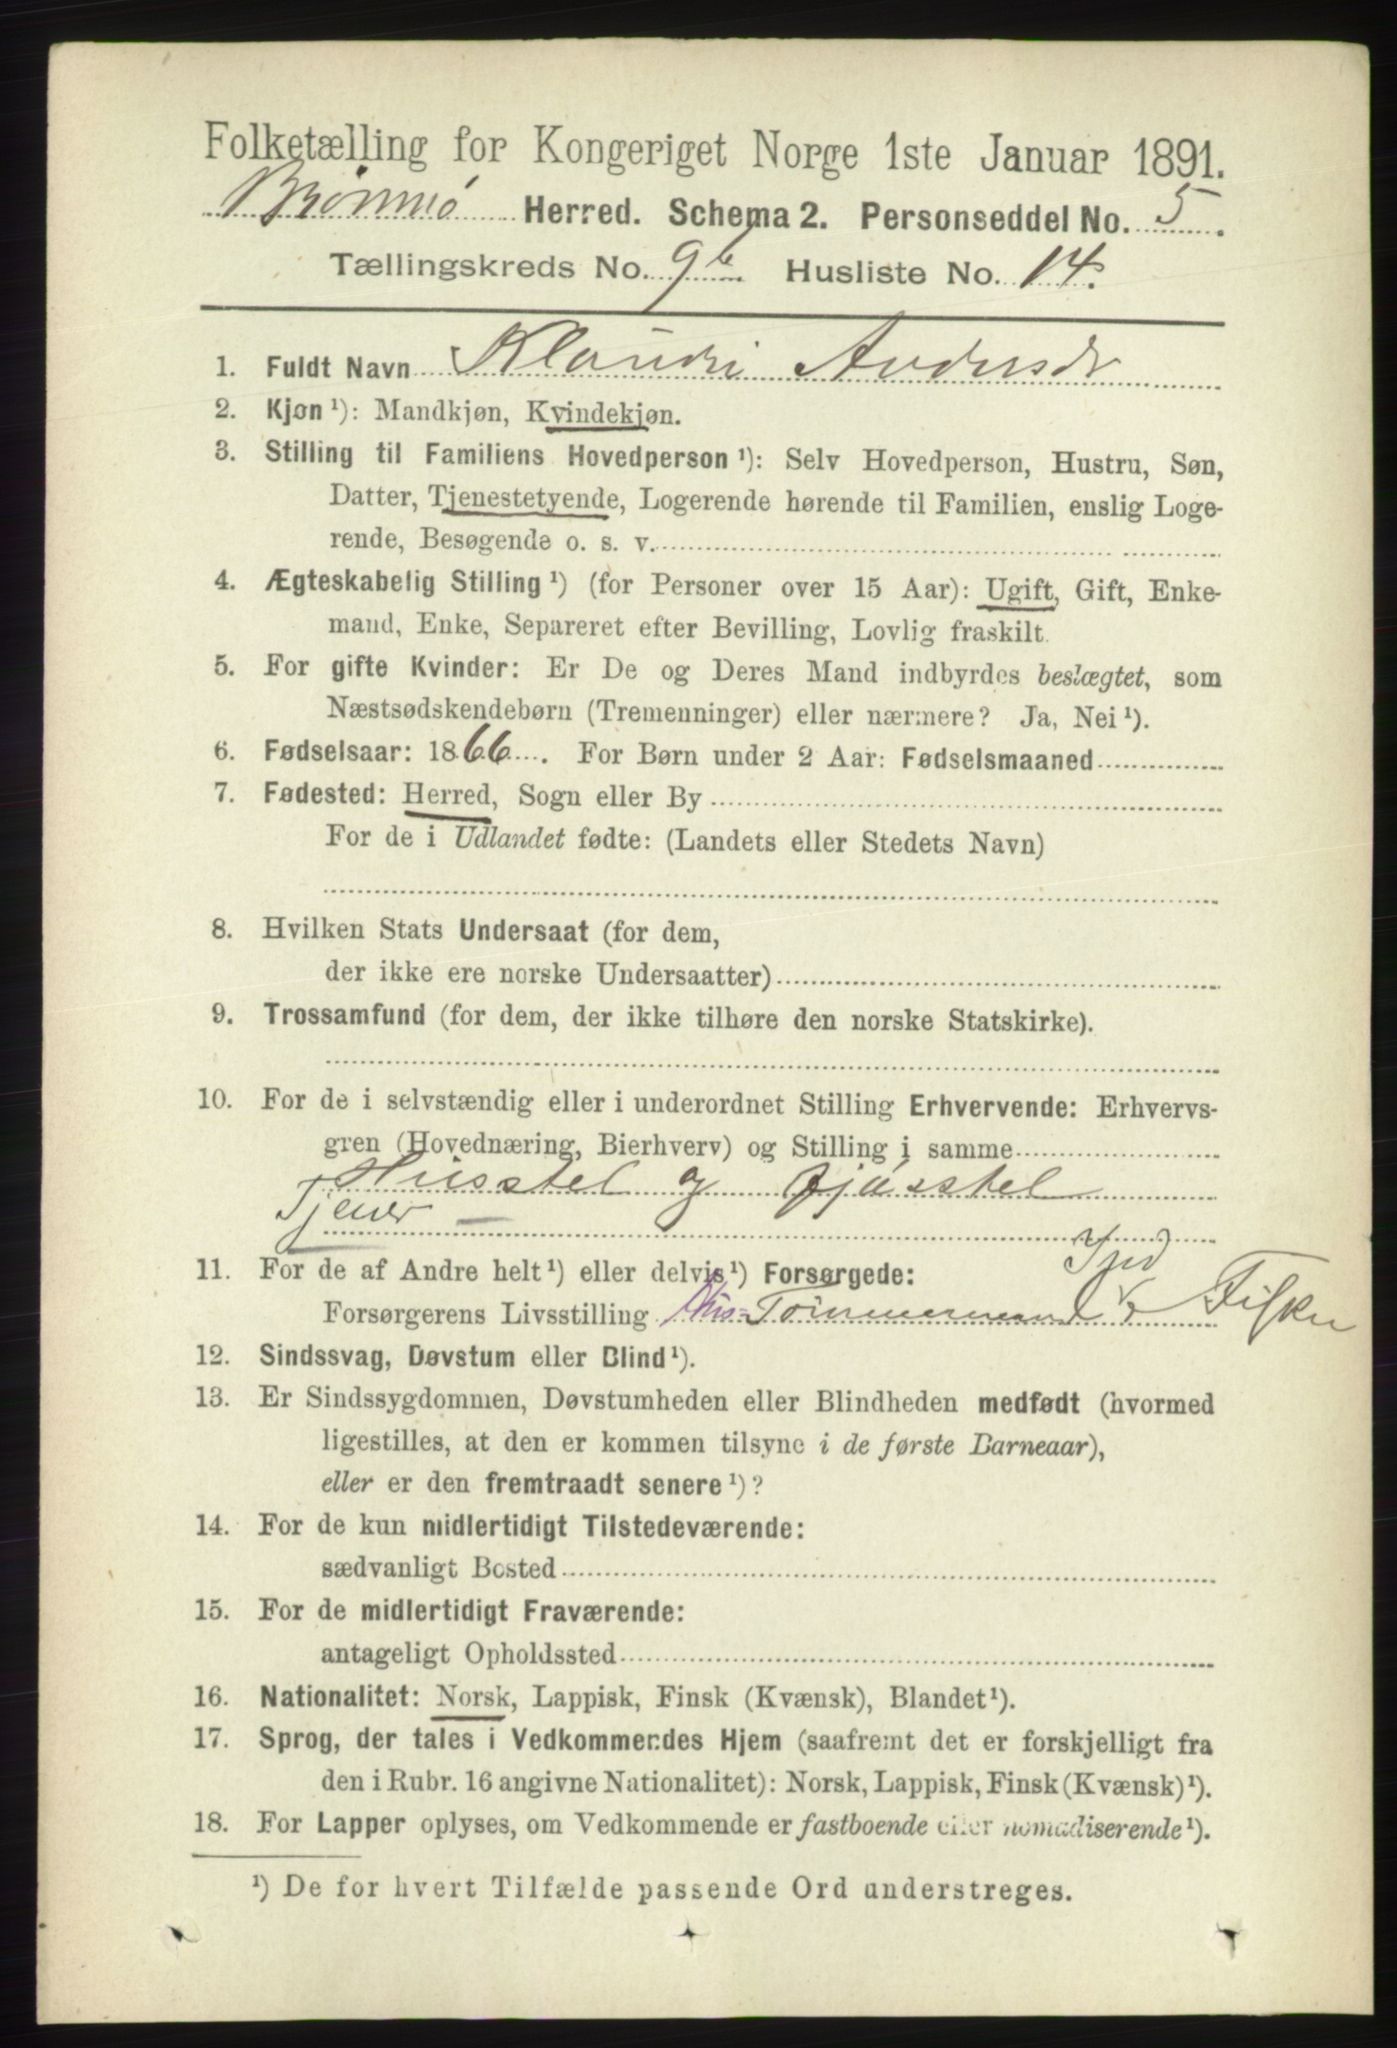 Folketælling for Kongeriget Norge 1ste Januar 1891.
Brønnø Herred. Schema 2. Personseddel No. 5.
Tællingskreds No. 9b Husliste No. 14.
1. Fuldt Navn Klaudi Andersdr
2. Kjøn ¹): Mandkjøn, Kvindekjøn.
3. Stilling til Familiens Hovedperson ¹): Selv Hovedperson, Hustru, Søn,
Datter, Tjenestetyende, Logerende hørende til Familien, enslig Loge-
rende, Besøgende o. s. v.
4. Ægteskabelig Stilling ¹) (for Personer over 15 Aar): Ugift, Gift, Enke-
mand, Enke, Separeret efter Bevilling, Lovlig fraskilt.
5. For gifte Kvinder: Er De og Deres Mand indbyrdes beslægtet, som
Næstsødskendebørn (Tremenninger) eller nærmere? Ja, Nei ¹).
6. Fødselsaar: 1866. For Børn under 2 Aar: Fødselsmaaned
7. Fødested: Herred, Sogn eller By
For de i Udlandet fødte: (Landets eller Stedets Navn)
8. Hvilken Stats Undersaat (for dem,
der ikke ere norske Undersaatter)
9. Trossamfund (for dem, der ikke tilhøre den norske Statskirke).
10. For de i selvstændig eller i underordnet Stilling Erhvervende: Erhvervs-
gren (Hovednæring, Bierhverv) og Stilling i samme
Husstel og fjøsstel
Tjener
11. For de af Andre helt ¹) eller delvis ¹) Forsørgede:
Forsørgerens Livsstilling Hus= Tømmermand Fisker
12. Sindssvag, Døvstum eller Blind ¹).
13. Er Sindssygdommen, Døvstumheden eller Blindheden medfødt (hvormed
ligestilles, at den er kommen tilsyne i de første Barneaar),
eller er den fremtraadt senere ¹)?
14. For de kun midlertidigt Tilstedeværende:
sædvanligt Bosted
15. For de midlertidigt Fraværende:
antageligt Opholdssted
16. Nationalitet: Norsk, Lappisk, Finsk (Kvænsk), Blandet ¹).
17. Sprog, der tales i Vedkommendes Hjem (saafremt det er forskjelligt fra
den i Rubr. 16 angivne Nationalitet): Norsk, Lappisk, Finsk (Kvænsk) ¹).
18. For Lapper oplyses, om Vedkommende er fastboende eller nomadiserende ¹).
¹) De for hvert Tilfælde passende Ord understreges.